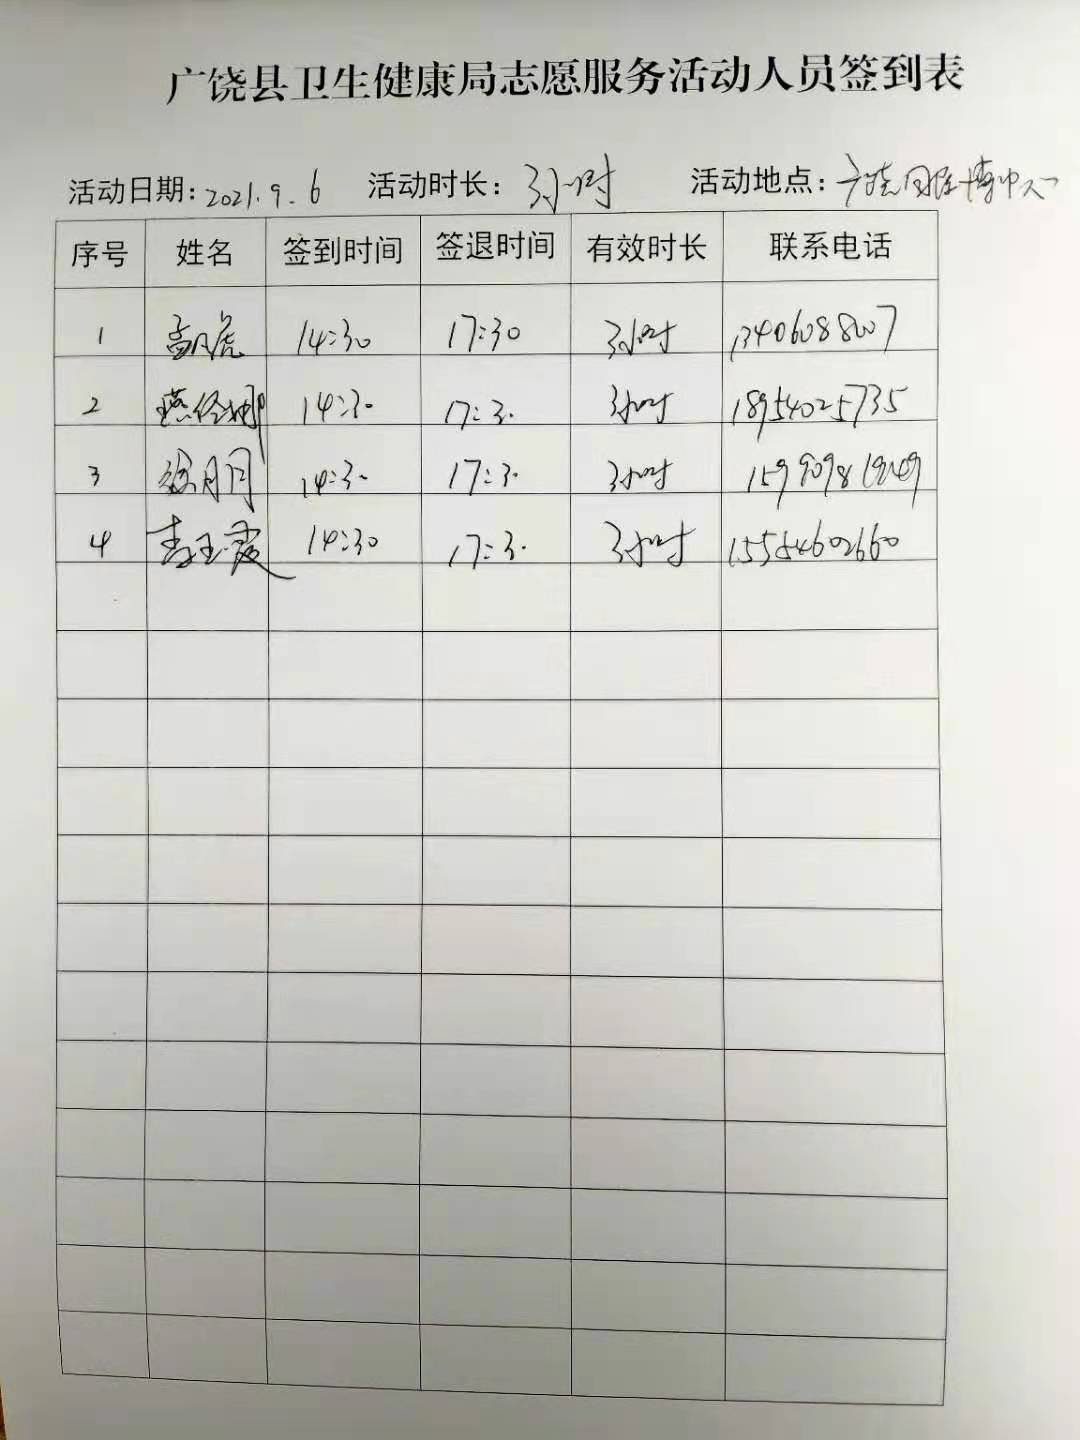 广饶县卫生健康局志愿服务活动人员签到表
活动日期: 2021.9.6 活动时长: 3小时 活动地点: 广饶国际博中心
序号 姓名 签到时间 签退时间 有效时长 联系电话
1 高凡虎 14:30 17:30 3小时 13406088007
2 14:30 17:30 3小时 18954025735
3 徐月月 14:30 17:30 3小时
4 李玉霞 14:30 17:30 3小时 15554602660